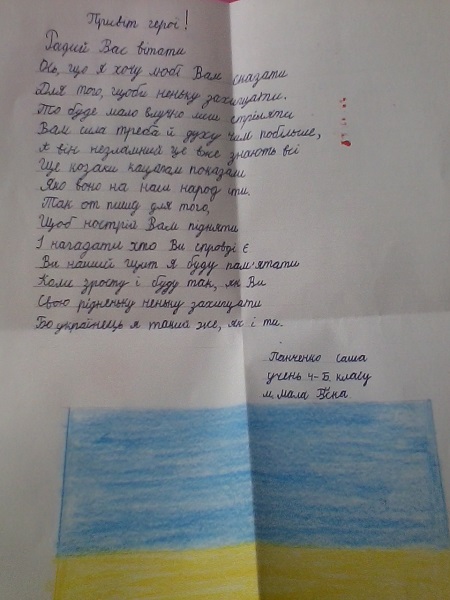 Привіт герої!
Радий Вас вітати
Ось, що я хочу мобі Вам сказати
Для того, щоби неньку захищати.
То буде мало влучно лиш стріляти
Вам сила треба й духу чим побільше,
А він незламний це вже знають всі
Ще козаки кацапам показали
Яко воно на наш народ іти.
Так от пишу для того,
Щоб настрій Вам підняти
І нагадати хто Ви справді є
Ви наший щит я буду пам'ятати
Коли зросту і буду так, як Ви
Свою рідненьку неньку захищати
Бо українець я такий же, як і ти.
Панченко Саша
учень 4-Б класу
м. Мала